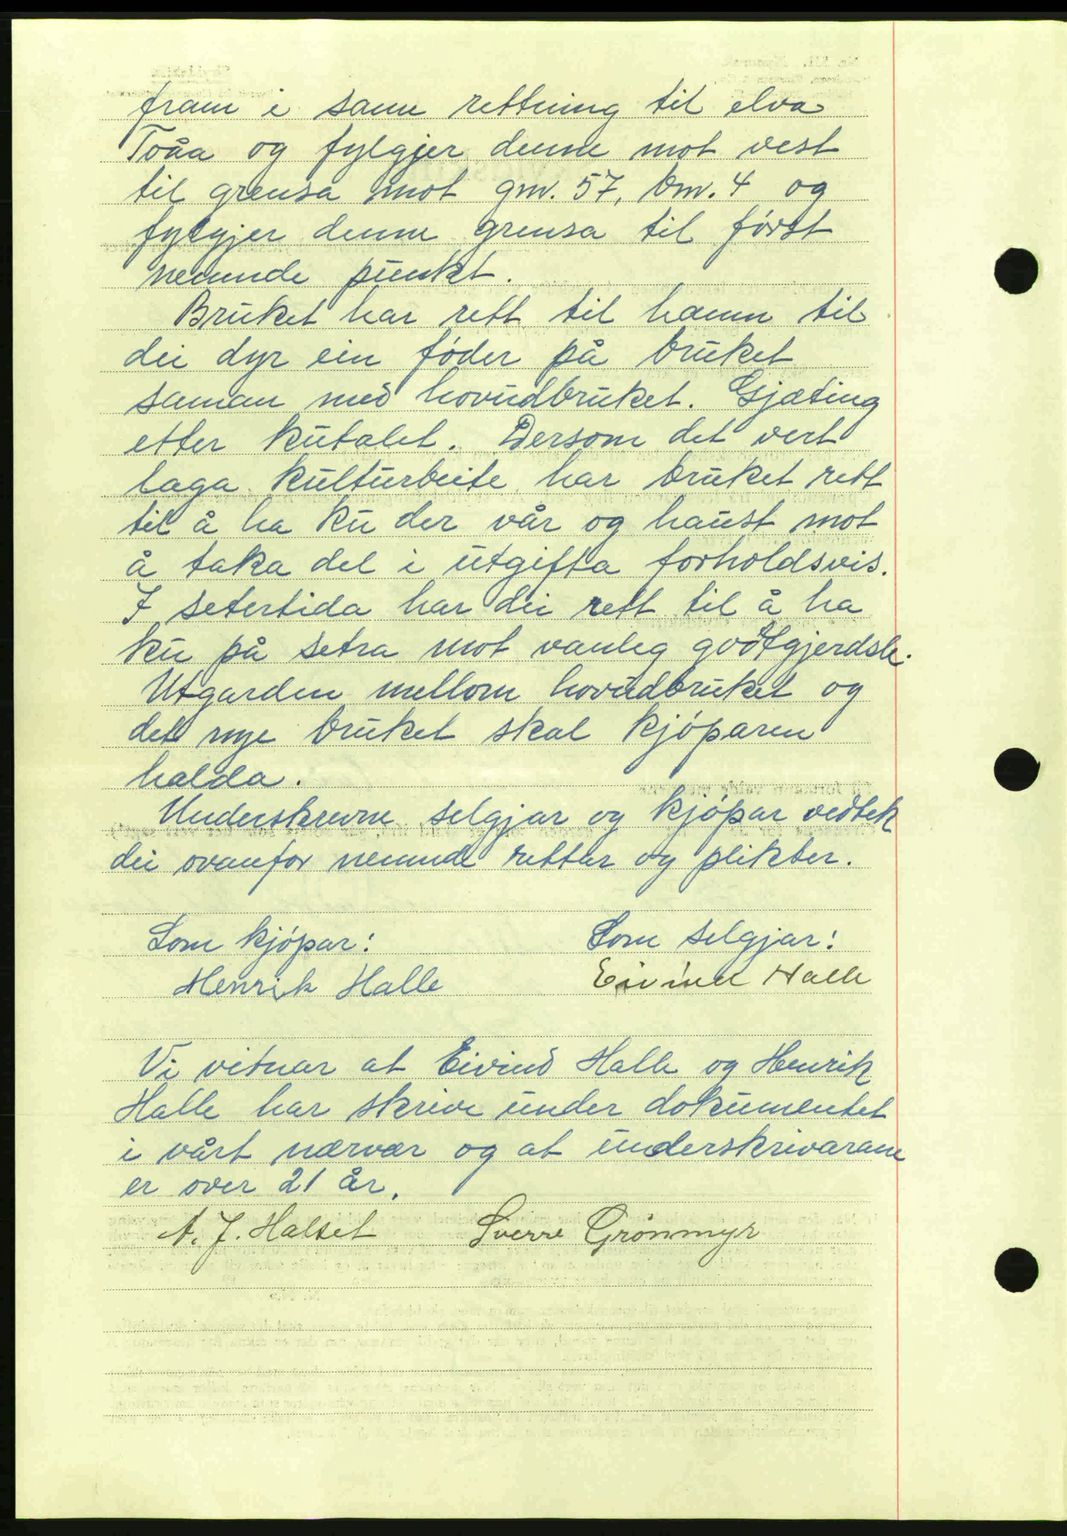 fram i same rettning til elva
Toåa og fylgjer denne mot vest
til grensa mot gnr. 57, bnr. 4 og
fylgjer denne grensa til först
nemnde punkt.
Bruket har rett til hamn til
dei dyr ein föder på bruket
saman med hovudbruket. Gjæting
etter kutalet. Dersom det vert
laga kulturbeite har bruket rett
til å ha ku der vår og haust mot
å taka del i utgifta forholdsvis.
I setertida har dei rett til å ha
ku på setra mot vanleg godtgjerdsle.
Utgarden mellom hovudbruket og
det nye bruket skal kjöparen
halda.
Underskrevne selgjar og kjöpar vedtek
dei ovanfor nemnde rettar og plikter.
Som kjöpar: Som selgjar:
Henrik Halle Eivind Halle
Vi vitnar at Eivind Halle og Henrik
Halle har skrive under dokumentet
i vårt nærvær og at underskrivarane
er over 21 år.
A. J. Halset Sverre Grönmyr